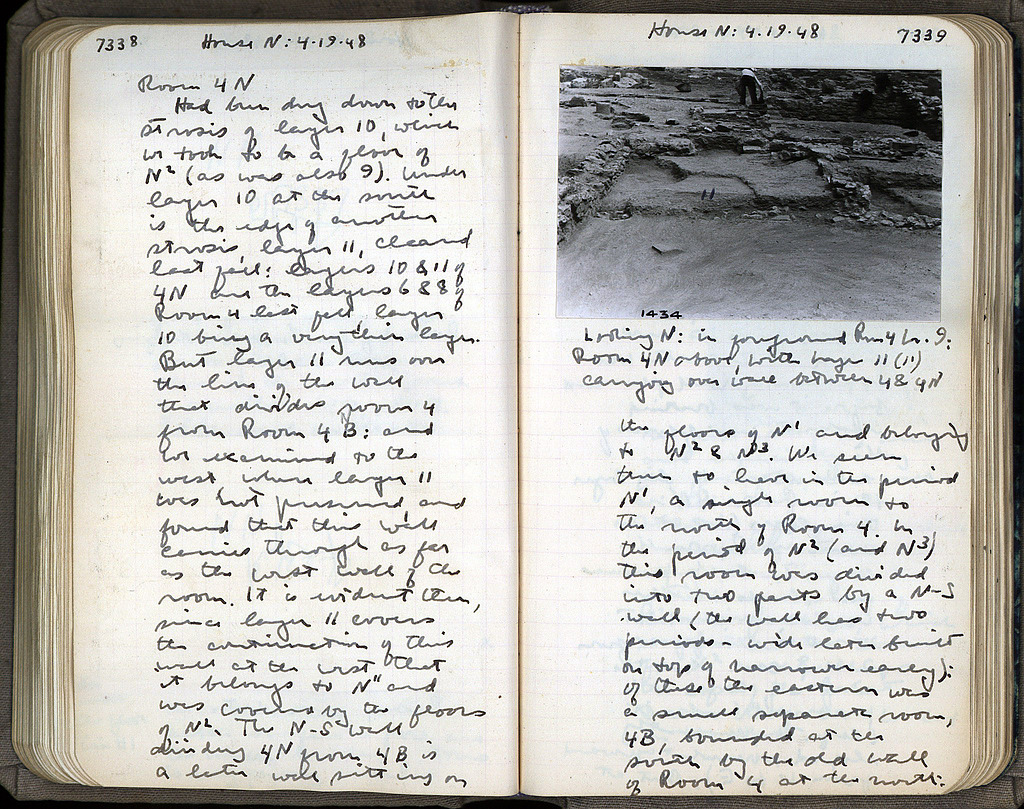 7338 House N: 4.19.48
Room 4N
Had been dug down to the
strosis of layer 10, which
we took to be a floor of
N² (as was also 9). Under
layer 10 at the south
is the edge of another
strosis, layer 11, cleared
last fall: layers 10 & 11 of
4N are the layers 6 & 8 of
Room 4 last fall, layer
10 being a very thin layer.
But layer 11 runs over
the line of the wall
that divides room 4
from Room 4B: and
we examined to the
west where layer 11
was not preserved and
found that this wall
carries through as far
as the west wall of the
room. It is evident then,
since layer 11 covers
the continuation of this
wall at the west that
it belongs to N" and
was covered by the floors
of N². The N-S wall
dividing 4N from 4B is
a later wall sitting on
House N: 4.19.48 7339
11
1434
Looking N: in foreground Rm 4 9:
Room 4N above, with layer 11 (11)
carrying over wall between 4 & 4N
the floors of N' and belonging
to N² & N³. We seem
then to have in the period
N', a single room to
the north of Room 4. In
the period of N² (and N³)
this room was divided
into two parts by a N-S
wall (the wall has two
periods - wide later built
on top of narrower early):
of these the eastern was
a small separate room,
4B, bounded at the
south by the old wall
of Room 4 at the north: